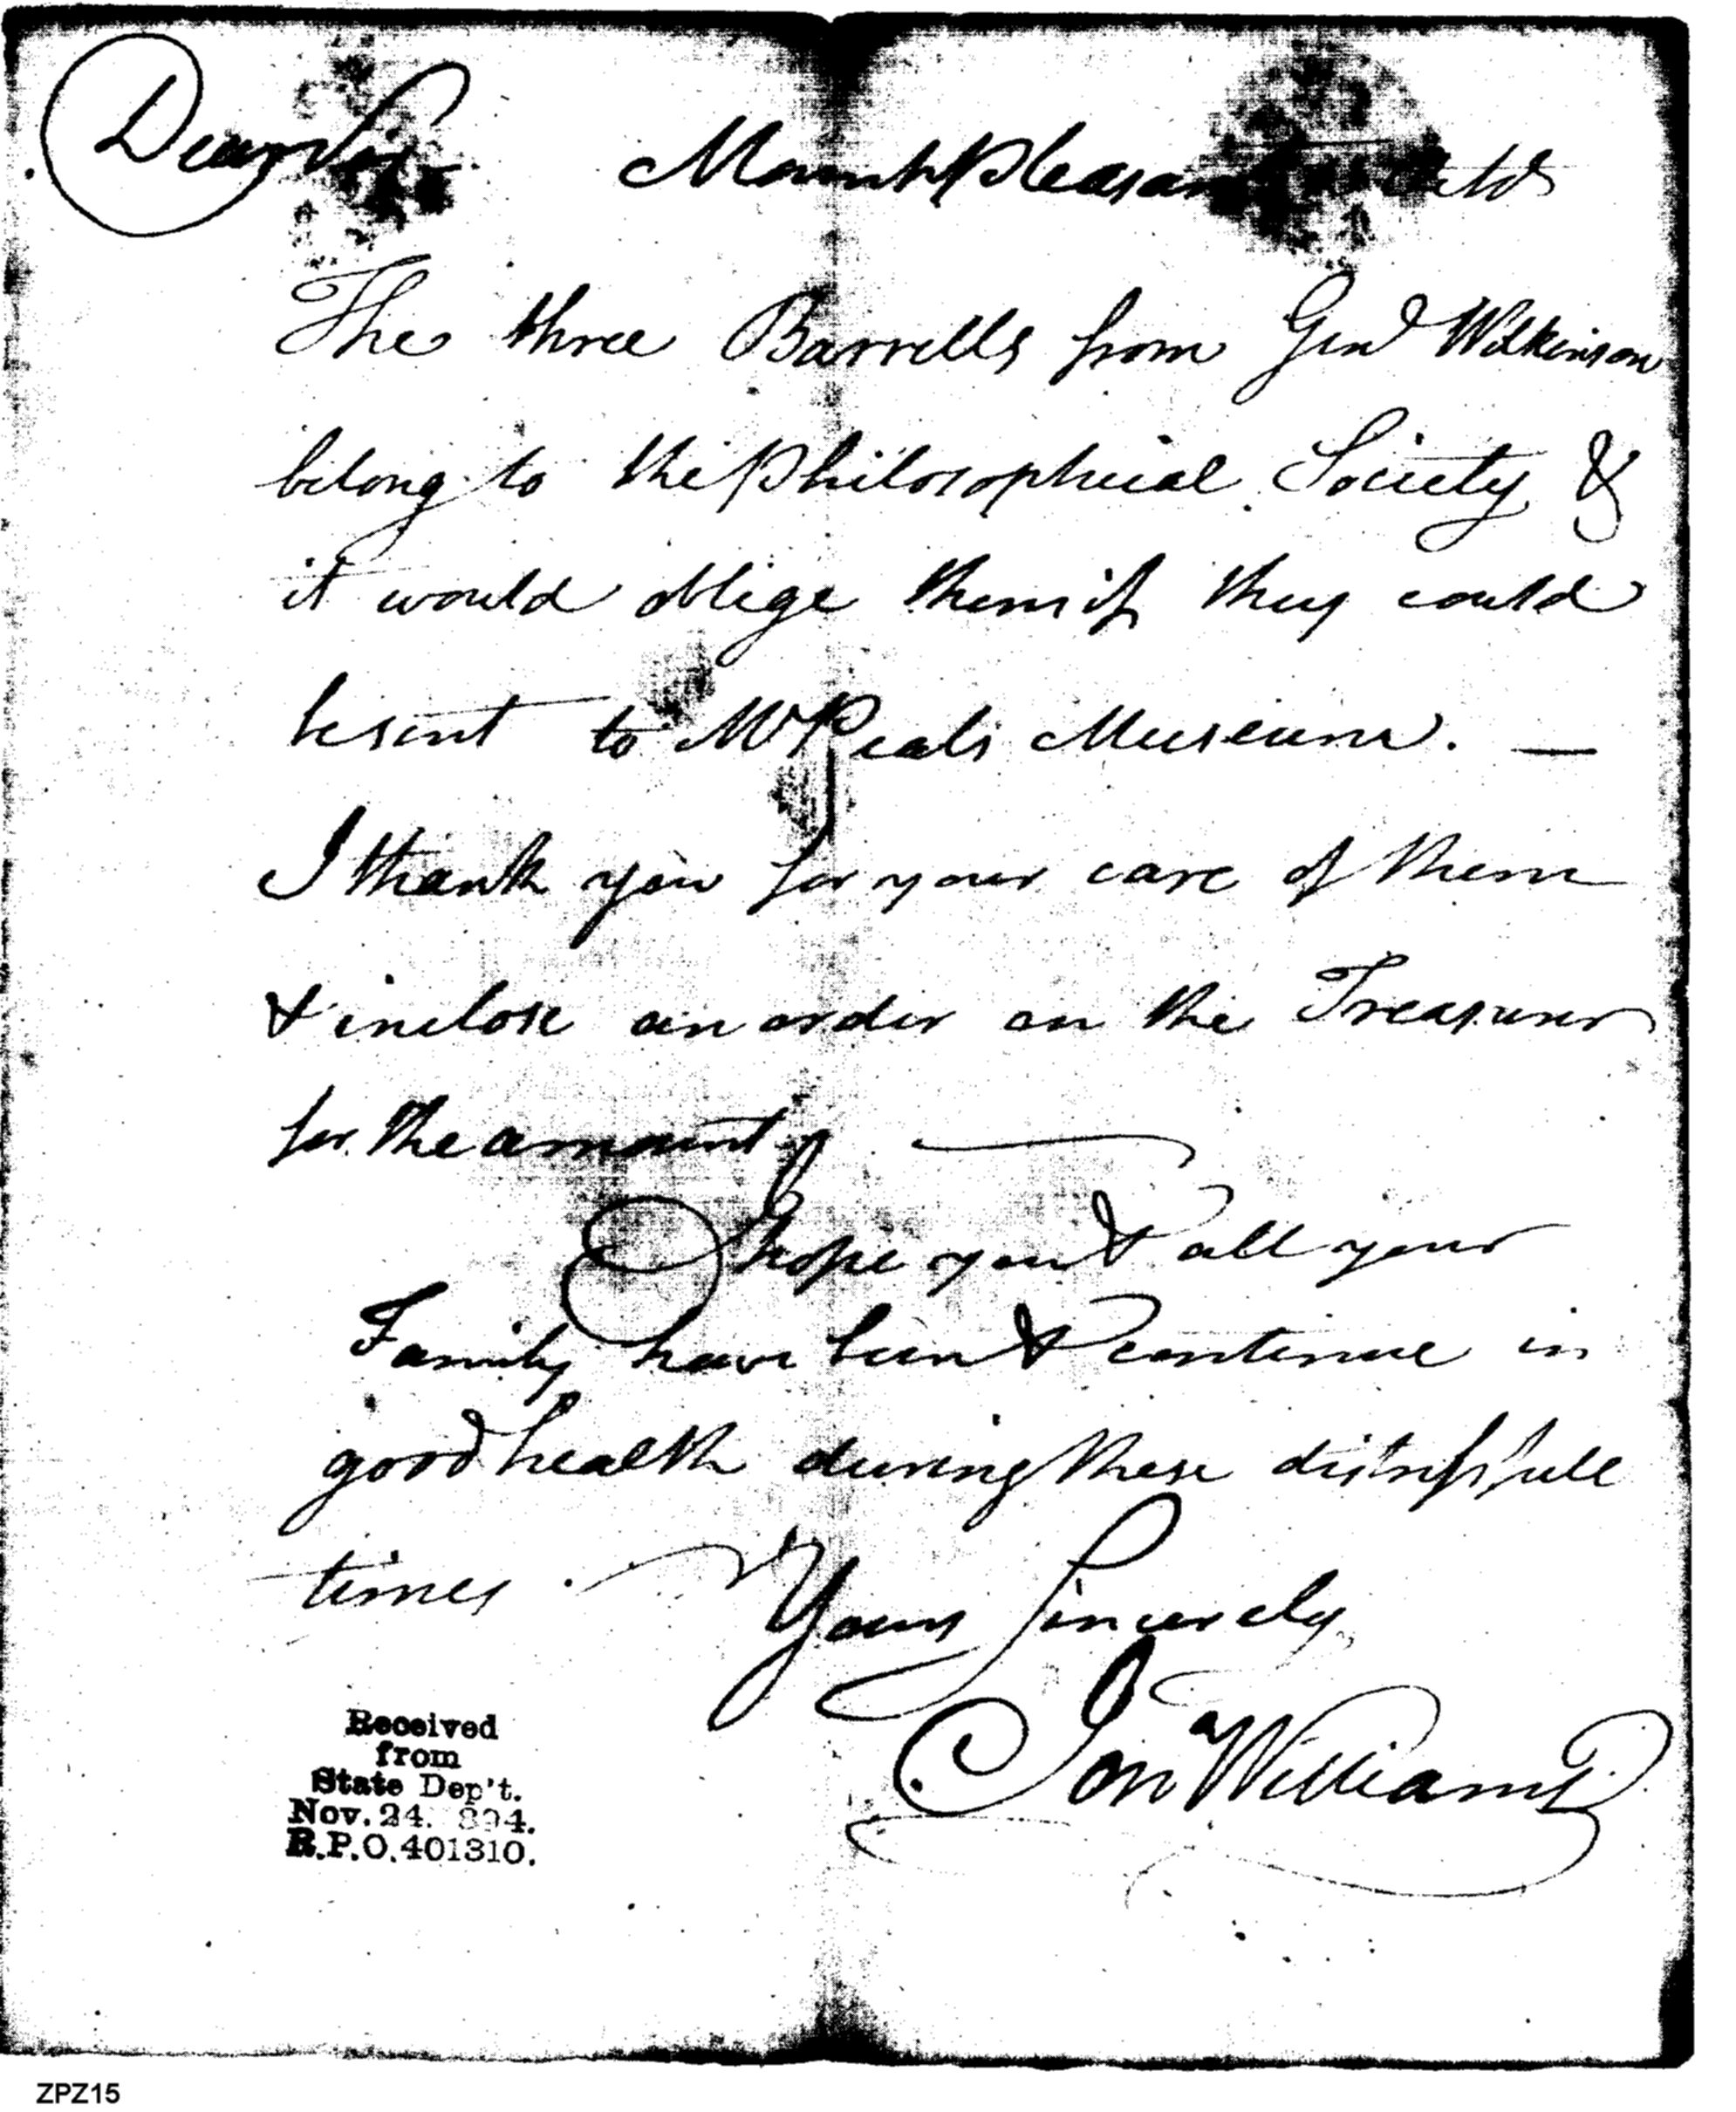 Dear Sir Mount Pleasant
The three Barrells from Genl Wilkinson
belong to the Philosophical Society &
it would oblige them if they could
be sent to Mr Peals Museum. —
I thank you for your care of them
& inclose an order on the Treasurer
for the amount
I hope you & all your
Family have been & continue in
good health during these distressfull
times.
Yours Sincerely
Jona Williams
Received
from
State Dep't.
Nov. 24. 894.
R.P.O. 401310.
ZPZ15